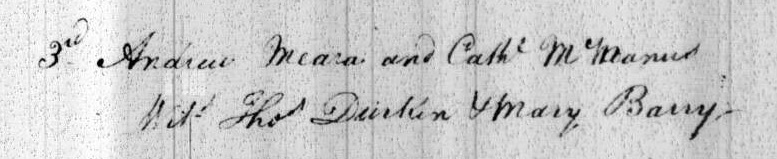 3rd Andrew Meara and Cathe McManus
Wits Thos Durkin & Mary Barry